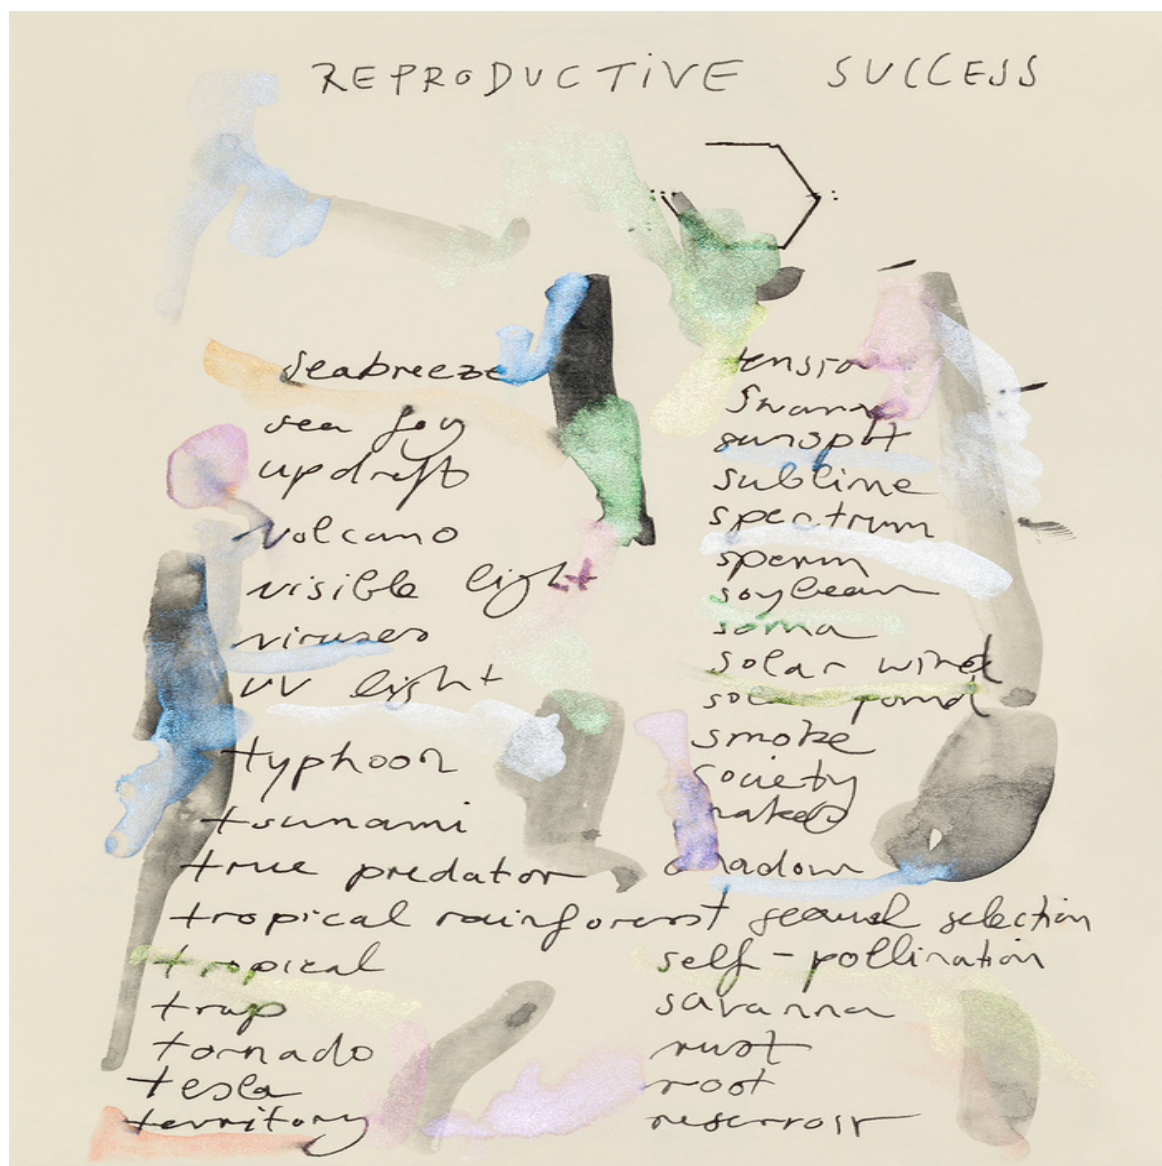 REPRODUCTIVE SUCCESS
seabreeze
sea fog
updraft
volcano
visible light
viruses
UV light
typhoon
tsunami
true predator
tropical rainforest
tropical
trap
tornado
tesla
territory
tension
swarm
sunspot
sublime
spectrum
sperm
soybean
soma
solar wind
solar pond
smoke
society
shadow
sexual selection
self-pollination
savanna
rust
root
reservoir